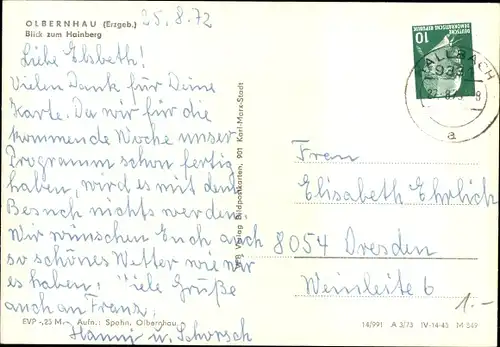 OLBERNHAU (Erzgeb.)
Blick zum Hainberg
25.8.72
Liebe Elsbeth!
Vielen Dank für Deine
Karte. Da wir für die
kommende Woche unser
Programm schon fertig
haben, wird es mit dem
Besuch nichts werden.
Wir wünschen Euch auch
so schönes Wetter wie wir
es haben! Viele Grüße
auch an Franz.
Hanni u. Schorsch
EVP -,23 M Aufn.: Spohn, Olbernhau
Verlag Bildpostkarten, 901 Karl-Marx-Stadt
10
DEUTSCHE
DEMOKRATISCHE REPUBLIK
a
Frau
Elisabeth Ehrlich
8054 Dresden
Weinleite 6
1.-
14/991 A 3/73 IV-14-45 M 549